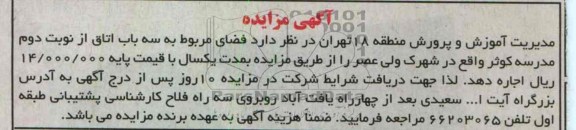 آگهی مزایده
مدیریت آموزش و پرورش منطقه ۱۸ تهران در نظر دارد فضای مربوط به سه باب اتاق از نوبت دوم
مدرسه کوثر واقع در شهرک ولی عصر را از طریق مزایده بمدت یکسال با قیمت پایه ۱۴/۰۰۰/۰۰۰
ریال اجاره دهد. لذا جهت دریافت شرایط شرکت در مزایده ۱۰روز پس از درج آگهی به آدرس
بزرگراه آیت ا... سعیدی بعد از چهارراه یافت آباد روبروی سه راه فلاح کارشناسی پشتیبانی طبقه
اول تلفن ۶۶۲۰۳۰۶۵ مراجعه فرمایید. ضمناً هزینه آگهی به عهده برنده مزایده می باشد.